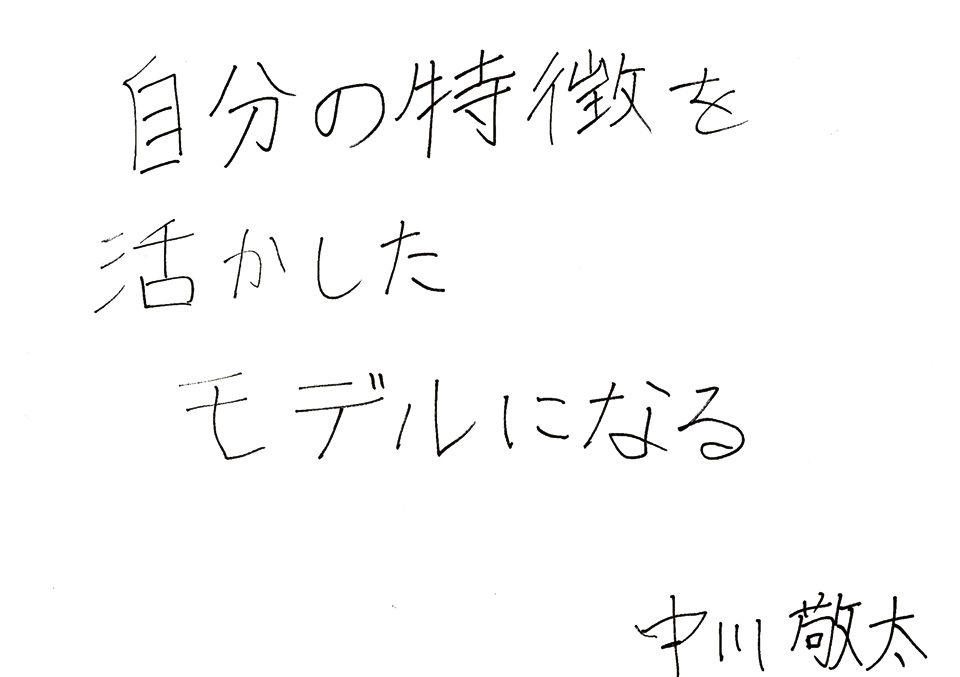 自分の特徴を
活かした
モデルになる
中川 敬太